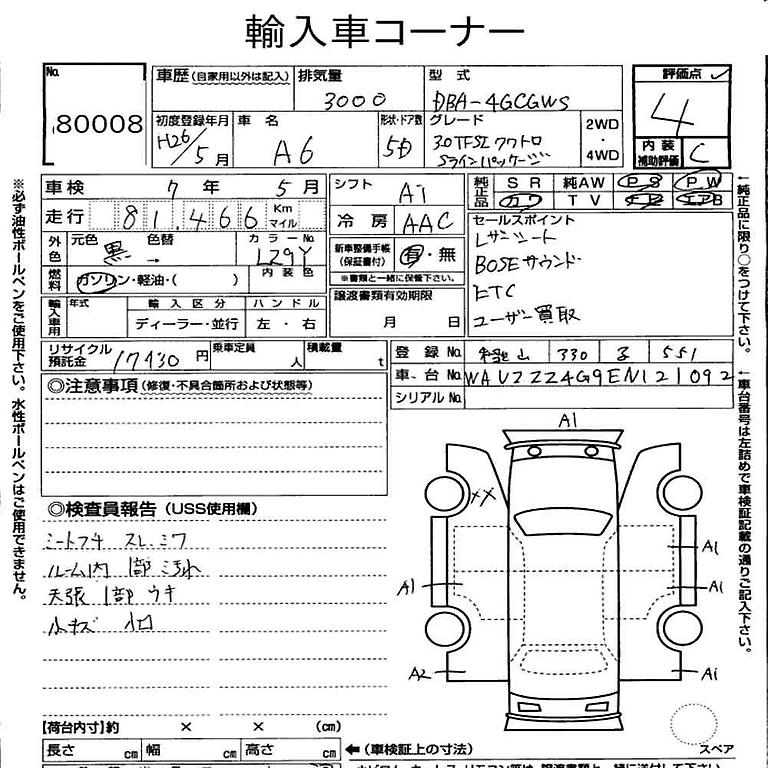 輸入車コーナー
No. 80008
車歴 (自家用以外は記入) 排気量 3000 型式 DBA-4GCGWS 評価点 4
初度登録年月 H26/5月 車名 A6 形状・ドア数 5D グレード 3.0TFSI クワトロ Sラインパッケージ 2WD・4WD 内装補助評価 C
車検 7年 5月 シフト AT 純正品 SR 純AW PS PW
走行 81,466 Km マイル 冷房 AAC カワ TV ナビ エアB
外色 元色 黒 色替 → カラーNo. LZ9Y 新車整備手帳(保証書付) 有・無
内装色 ※書類と一緒に保管下さい。
燃料 ガソリン・軽油・( )
セールスポイント
レザーシート
BOSEサウンド
ETC
ユーザー買取
輸入車用 年式 輸入区分 ディーラー・並行 ハンドル 左・右 譲渡書類有効期限 月 日
リサイクル預託金 17430円 乗車定員 人 積載量 t
登録No. 330 551
車台No. WAUZZZ4G9EN121092
シリアルNo.
◎注意事項 (修復・不具合箇所および状態等)
◎検査員報告 (USS使用欄)
シートコゲ スレ シワ
ルーム内 1部 ヨゴれ
天張 1部 ウキ
小キズ 凹
A1
XX
A1
A1
A1
A2
A1
スペア
【荷台内寸】約 × × (cm)
長さ cm 幅 cm 高さ cm ←(車検証上の寸法)
※必ず油性ボールペンをご使用下さい。水性ボールペンはご使用できません。
←純正品に限り○をつけて下さい。
←車台番号は左詰めで車検証記載の通りご記入下さい。